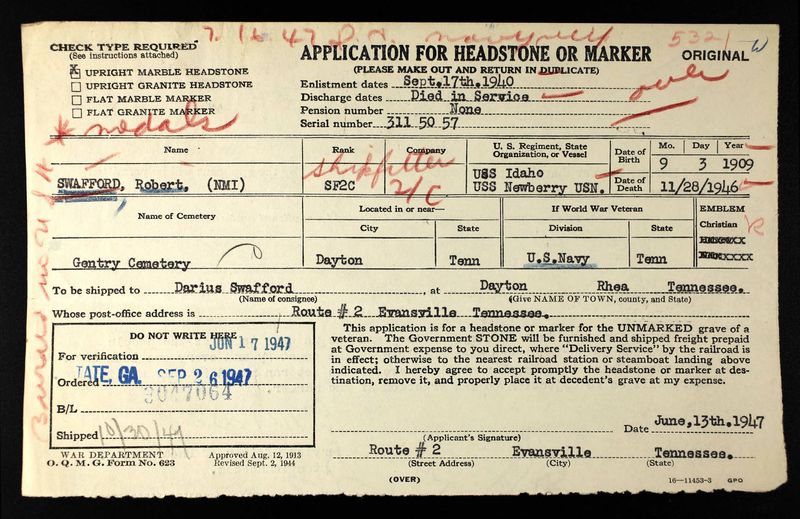 7.16.47
532
CHECK TYPE REQUIRED
(See instructions attached)
APPLICATION FOR HEADSTONE OR MARKER
ORIGINAL
(PLEASE MAKE OUT AND RETURN IN DUPLICATE)
X UPRIGHT MARBLE HEADSTONE
UPRIGHT GRANITE HEADSTONE
FLAT MARBLE MARKER
FLAT GRANITE MARKER
* medals
Enlistment dates Sept.17th.1940
Discharge dates Died in Service
over
Pension number None
Serial number 311 50 57
Name Rank Company U. S. Regiment, State Organization, or Vessel Date of Birth Mo. Day Year
shipfitter 2/C
9 3 1909
SWAFFORD, Robert. (NMI) SF2C USS Idaho
USS Newberry USN. Date of Death 11/28/1946
Name of Cemetery Located in or near— If World War Veteran EMBLEM
City State Division State Christian
Gentry Cemetery Dayton Tenn U.S.Navy Tenn
To be shipped to Darius Swafford, at Dayton Rhea Tennessee.
(Name of consignee) (Give NAME OF TOWN, county, and State)
Whose post-office address is Route # 2 Evansville Tennessee.
DO NOT WRITE HERE
JUN 17 1947
For verification
TATE, GA. SEP 26 1947
Ordered
3047064
B/L
Shipped 10/30/47
This application is for a headstone or marker for the UNMARKED grave of a
veteran. The Government STONE will be furnished and shipped freight prepaid
at Government expense to you direct, where "Delivery Service" by the railroad is
in effect; otherwise to the nearest railroad station or steamboat landing above
indicated. I hereby agree to accept promptly the headstone or marker at des-
tination, remove it, and properly place it at decedent's grave at my expense.
Date June,13th.1947
(Applicant's Signature)
Route # 2 Evansville Tennessee.
(Street Address) (City) (State)
WAR DEPARTMENT
O. Q. M. G. Form No. 623
Approved Aug. 12, 1913
Revised Sept. 2, 1944
(OVER)
16—11453-3 GPO